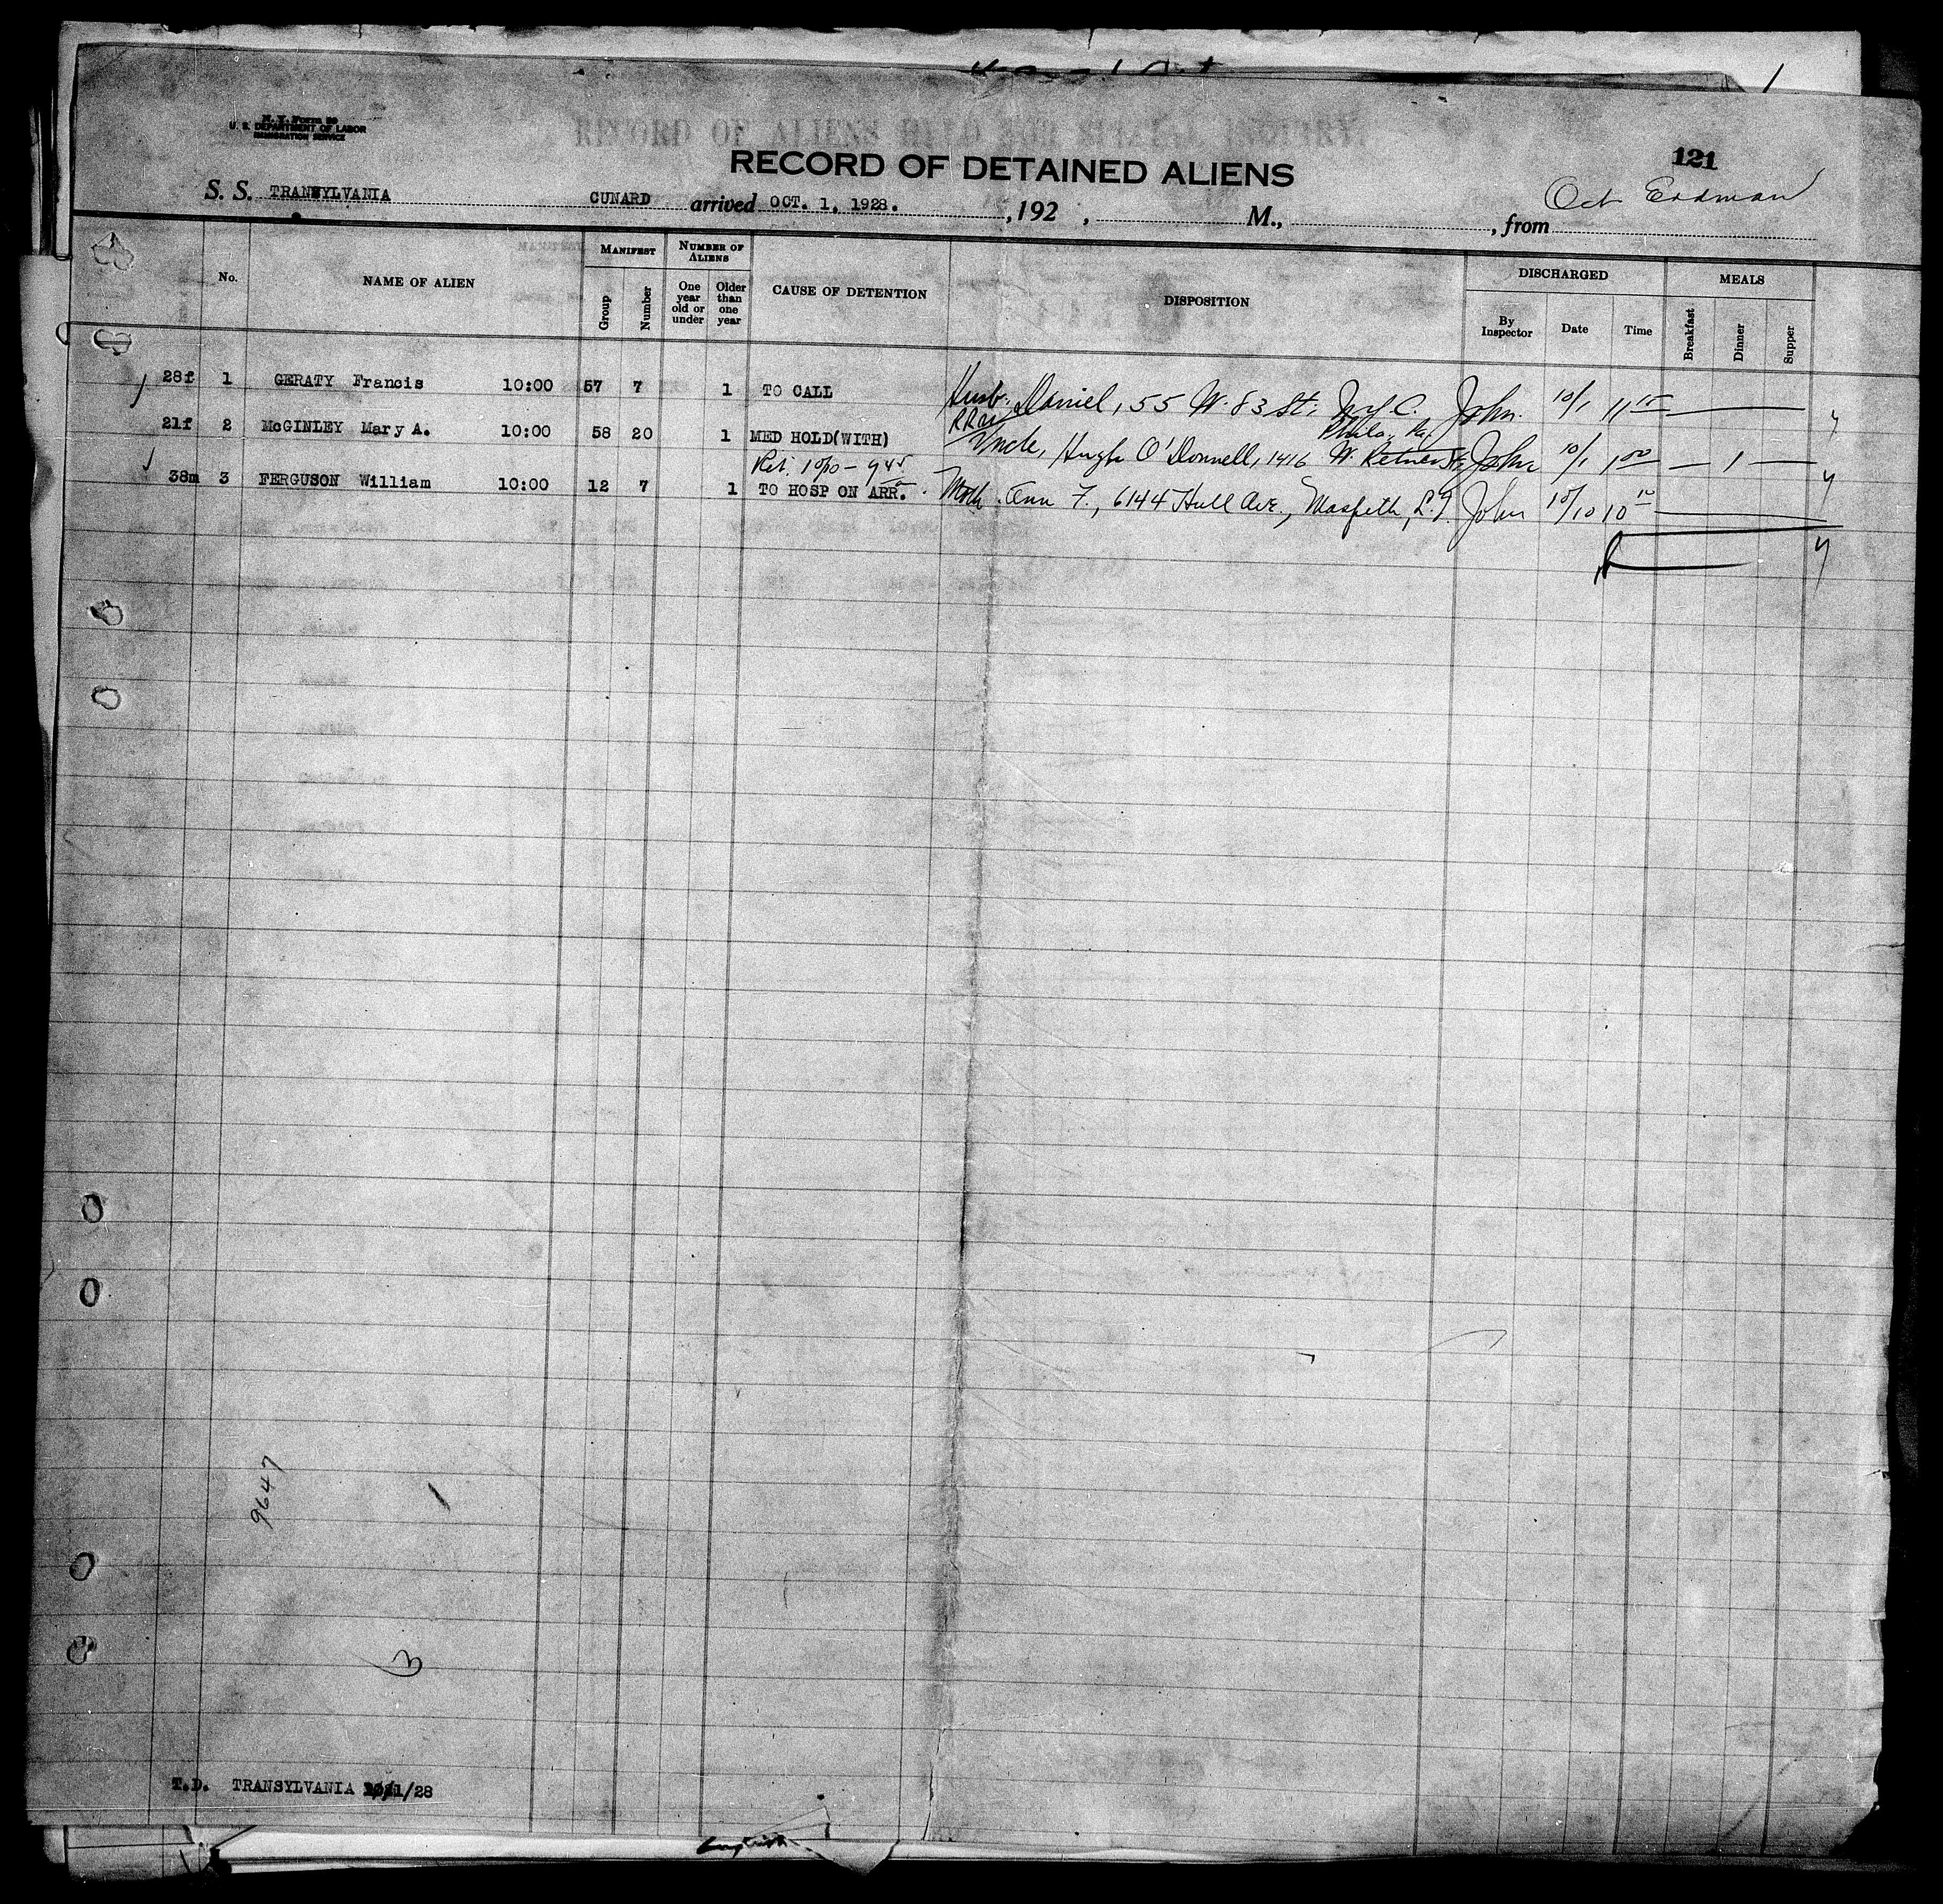 N. Y. Form 89
U. S. DEPARTMENT OF LABOR
IMMIGRATION SERVICE
RECORD OF ALIENS HELD FOR SPECIAL INQUIRY
RECORD OF DETAINED ALIENS
121
S. S. TRANSYLVANIA CUNARD arrived OCT. 1, 1928. , 192 , M., , from
Oct Erdman
No. NAME OF ALIEN MANIFEST Group Number NUMBER OF ALIENS One year old or under Older than one year CAUSE OF DETENTION DISPOSITION DISCHARGED By Inspector Date Time MEALS Breakfast Dinner Supper
28f 1 GERATY Francis 10:00 57 7 1 TO CALL Husb. Daniel, 55 W. 83 St. N.Y.C. John. 10/1 11 15
RRex Phila. Pa.
21f 2 McGINLEY Mary A. 10:00 58 20 1 MED HOLD(WITH) Uncle, Hugh O'Donnell, 1416 W. Ritner St. John 10/1 1 00 — 1 —
Ret. 10/10 - 9 45
38m 3 FERGUSON William 10:00 12 7 1 TO HOSP ON ARR. Moth. Ann F., 6144 Hull Ave., Maspeth, L.I. John 10/10 10 10
9647
3
T.D. TRANSYLVANIA 10/1/28